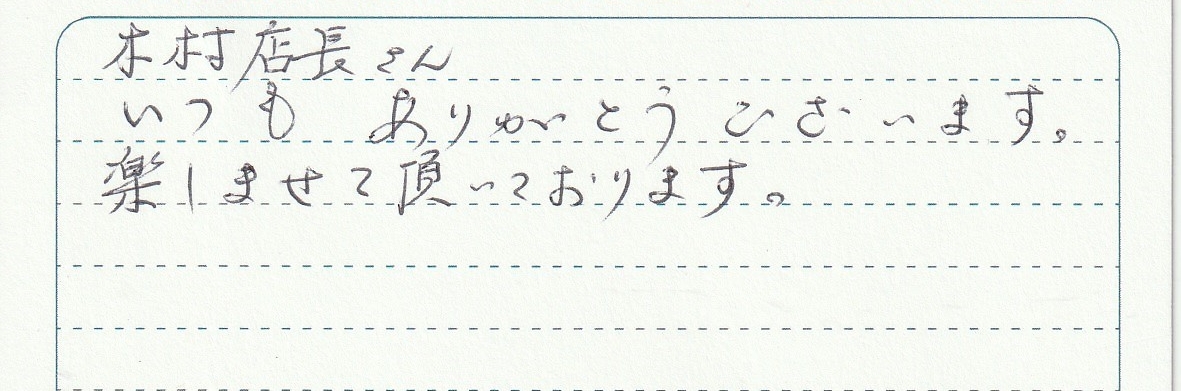 木村店長さん
いつも ありがとうございます。
楽しませて頂いております。